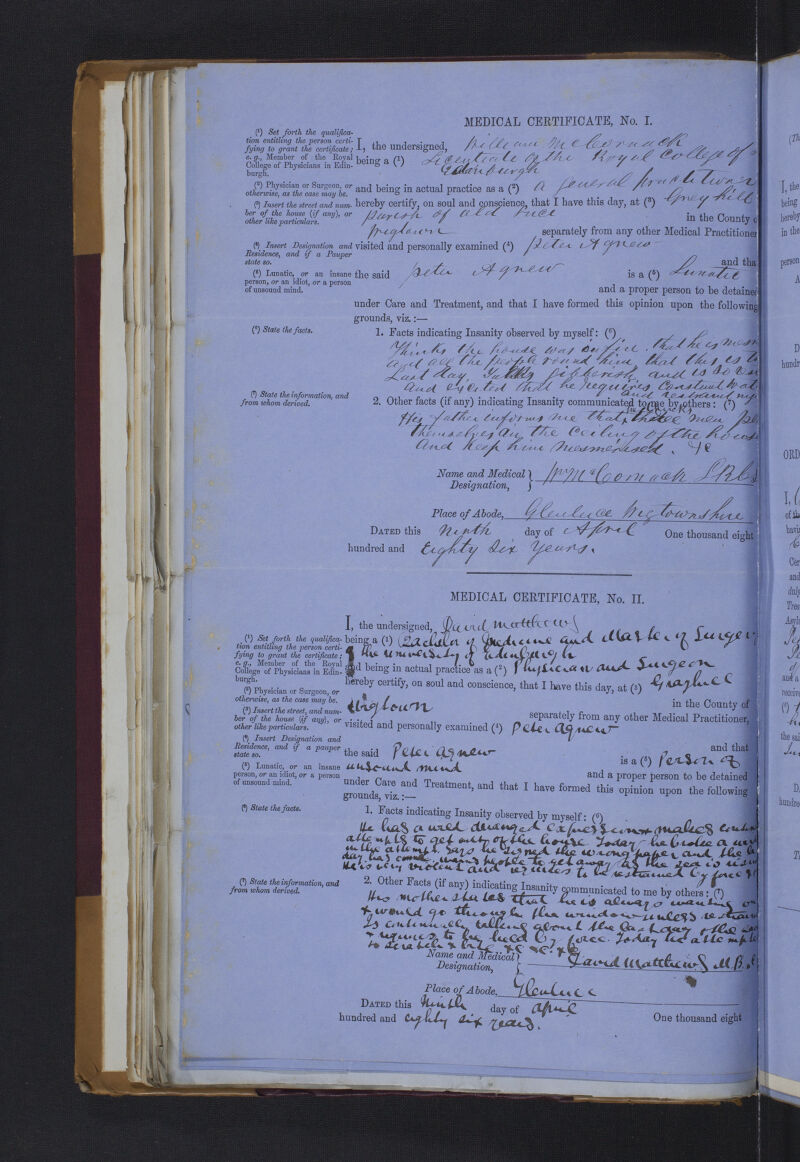 MEDICAL CERTIFICATE, No. I.
(¹) Set forth the qualifica-
tion entitling the person certi-
fying to grant the certificate;
e. g., Member of the Royal
College of Physicians in Edin-
burgh.
I, the undersigned, William McCormack
being a (¹) Licentiate of the Royal College of
Edinburgh
(²) Physician or Surgeon, or
otherwise, as the case may be.
and being in actual practice as a (²) a general practitioner
(³) Insert the street and num-
ber of the house (if any), or
other like particulars.
hereby certify, on soul and conscience, that I have this day, at (³) Greyhill
parish of old Luce in the County o
Wigtown separately from any other Medical Practitioner
(⁴) Insert Designation and
Residence, and if a Pauper
state so.
visited and personally examined (⁴) Peter Agnew
and tha
(⁵) Lunatic, or an insane
person, or an idiot, or a person
of unsound mind.
the said Peter Agnew is a (⁵) Lunatic
and a proper person to be detained
under Care and Treatment, and that I have formed this opinion upon the following
grounds, viz.:—
(⁶) State the facts.
1. Facts indicating Insanity observed by myself: (⁶)
Thinks the house was on fire, that he is mesm
and all the people round him that this is th
Last day. Talks gibberish, and is so
and excited that he requires constant
and restraint
(⁷) State the information, and
from whom derived.
2. Other facts (if any) indicating Insanity communicated to me by others: (⁷)
His father informs me that he thinks men
themselves on the ceiling of the house
and keep him mesmerised. &c
Name and Medical
Designation, Wm McCormack LRC
Place of Abode, Glenluce Wigtownshire
DATED this Ninth day of April One thousand eight
hundred and Eighty Six Years.
MEDICAL CERTIFICATE, No. II.
I, the undersigned, David Matthews
(¹) Set forth the qualifica-
tion entitling the person certi-
fying to grant the certificate;
e. g., Member of the Royal
College of Physicians in Edin-
burgh.
being a (¹) Bachelor of Medicine and Master of Surger
of the University of Edinburgh
and being in actual practice as a (²) Physician and Surgeon
(²) Physician or Surgeon, or
otherwise, as the case may be.
hereby certify, on soul and conscience, that I have this day, at (³) Grayhill
in the County of
(³) Insert the street, and num-
ber of the house (if any), or
other like particulars.
Wigtown separately from any other Medical Practitioner,
visited and personally examined (⁴) Peter Agnew
(⁴) Insert Designation and
Residence, and if a pauper
state so.
and that
the said Peter Agnew is a (⁵) Person of
(⁵) Lunatic, or an insane
person, or an idiot, or a person
of unsound mind.
unsound mind and a proper person to be detained
under Care and Treatment, and that I have formed this opinion upon the following
grounds, viz.:—
(⁶) State the facts.
1. Facts indicating Insanity observed by myself: (⁶)
He has a wild deranged expression makes
attempts to get out of the house. Today he broke a
in the attempt. Says he signed the wrong paper and the
day has come, wants people to get away as the sea is
He is very violent and requires to be restrained by force &c
(⁷) State the information, and
from whom derived.
2. Other Facts (if any) indicating Insanity communicated to me by others: (⁷)
His mother states that he is always wanting
& would go through the window unless
Is continually talking about the last day & the
& requires to be held by force. Today he attempte
to scratch & bite &c &c &c
Name and Medical
Designation, David Matthews M.B.
Place of Abode, Glenluce
DATED this Ninth day of April One thousand eight
hundred and eighty six years.